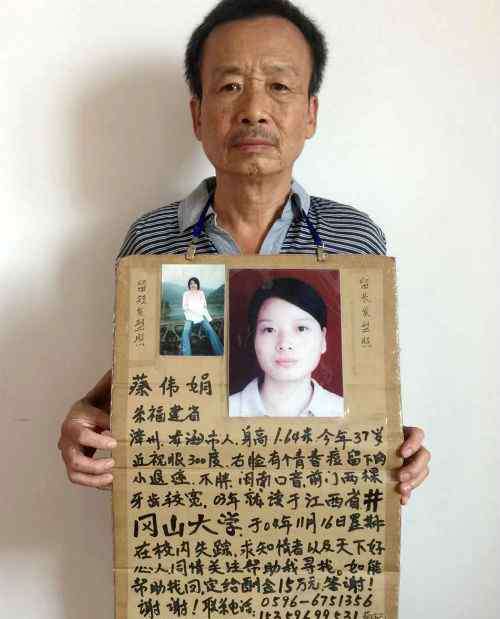 留短发型照
留长发型照
蔡伟娟
系福建省
漳州,龙海市人,身高1.64米今年37岁
近视眼300度,右脸有个青春痘留下的
小退迹,不胖,闽南口音,前门两棵
牙齿较宽,03年就读于江西省井
冈山大学于04年11月16日星期
在校内失踪,求知情者以及天下好
心人同情关注帮助我寻找。如能
帮助找回,定给酬金15万元答谢!
谢谢!联系电话:0596-6751356
15359699531